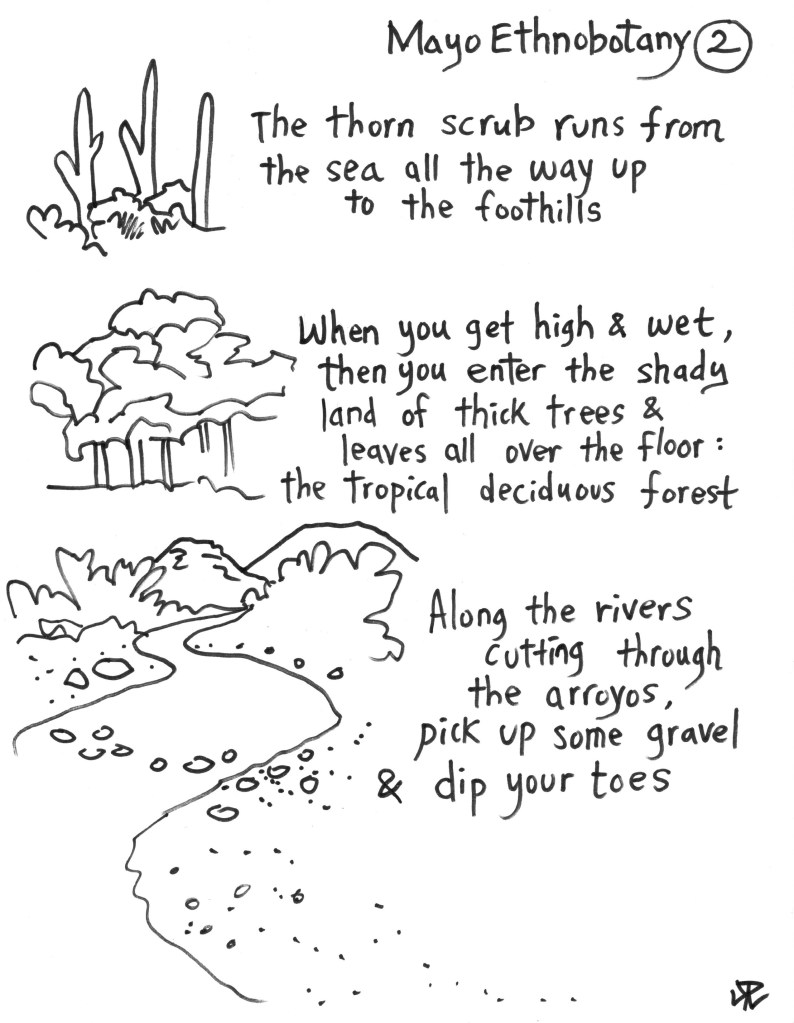 Mayo Ethnobotany 2
The thorn scrub runs from
the sea all the way up
to the foothills
When you get high & wet,
then you enter the shady
land of thick trees &
leaves all over the floor:
the tropical deciduous forest
Along the rivers
cutting through
the arroyos,
pick up some gravel
& dip your toes